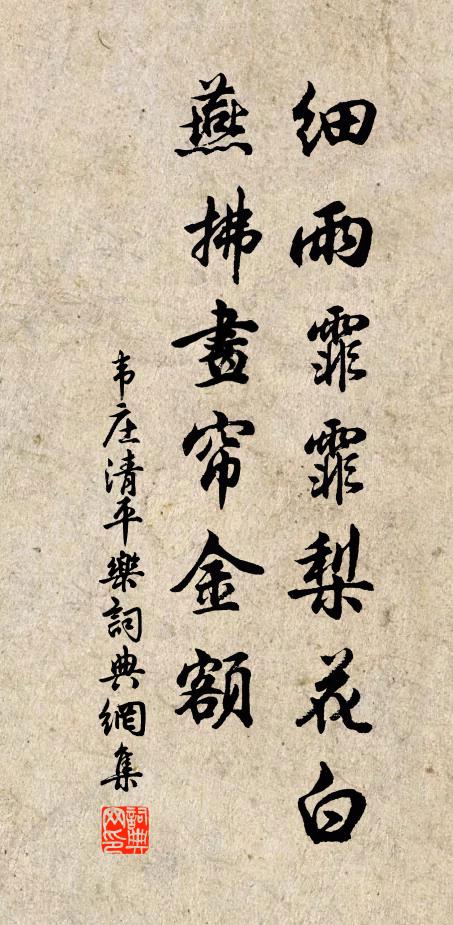 细雨霏霏梨花白
燕拂畫帘金额
韦庄清平樂詞典網集
詞典网印